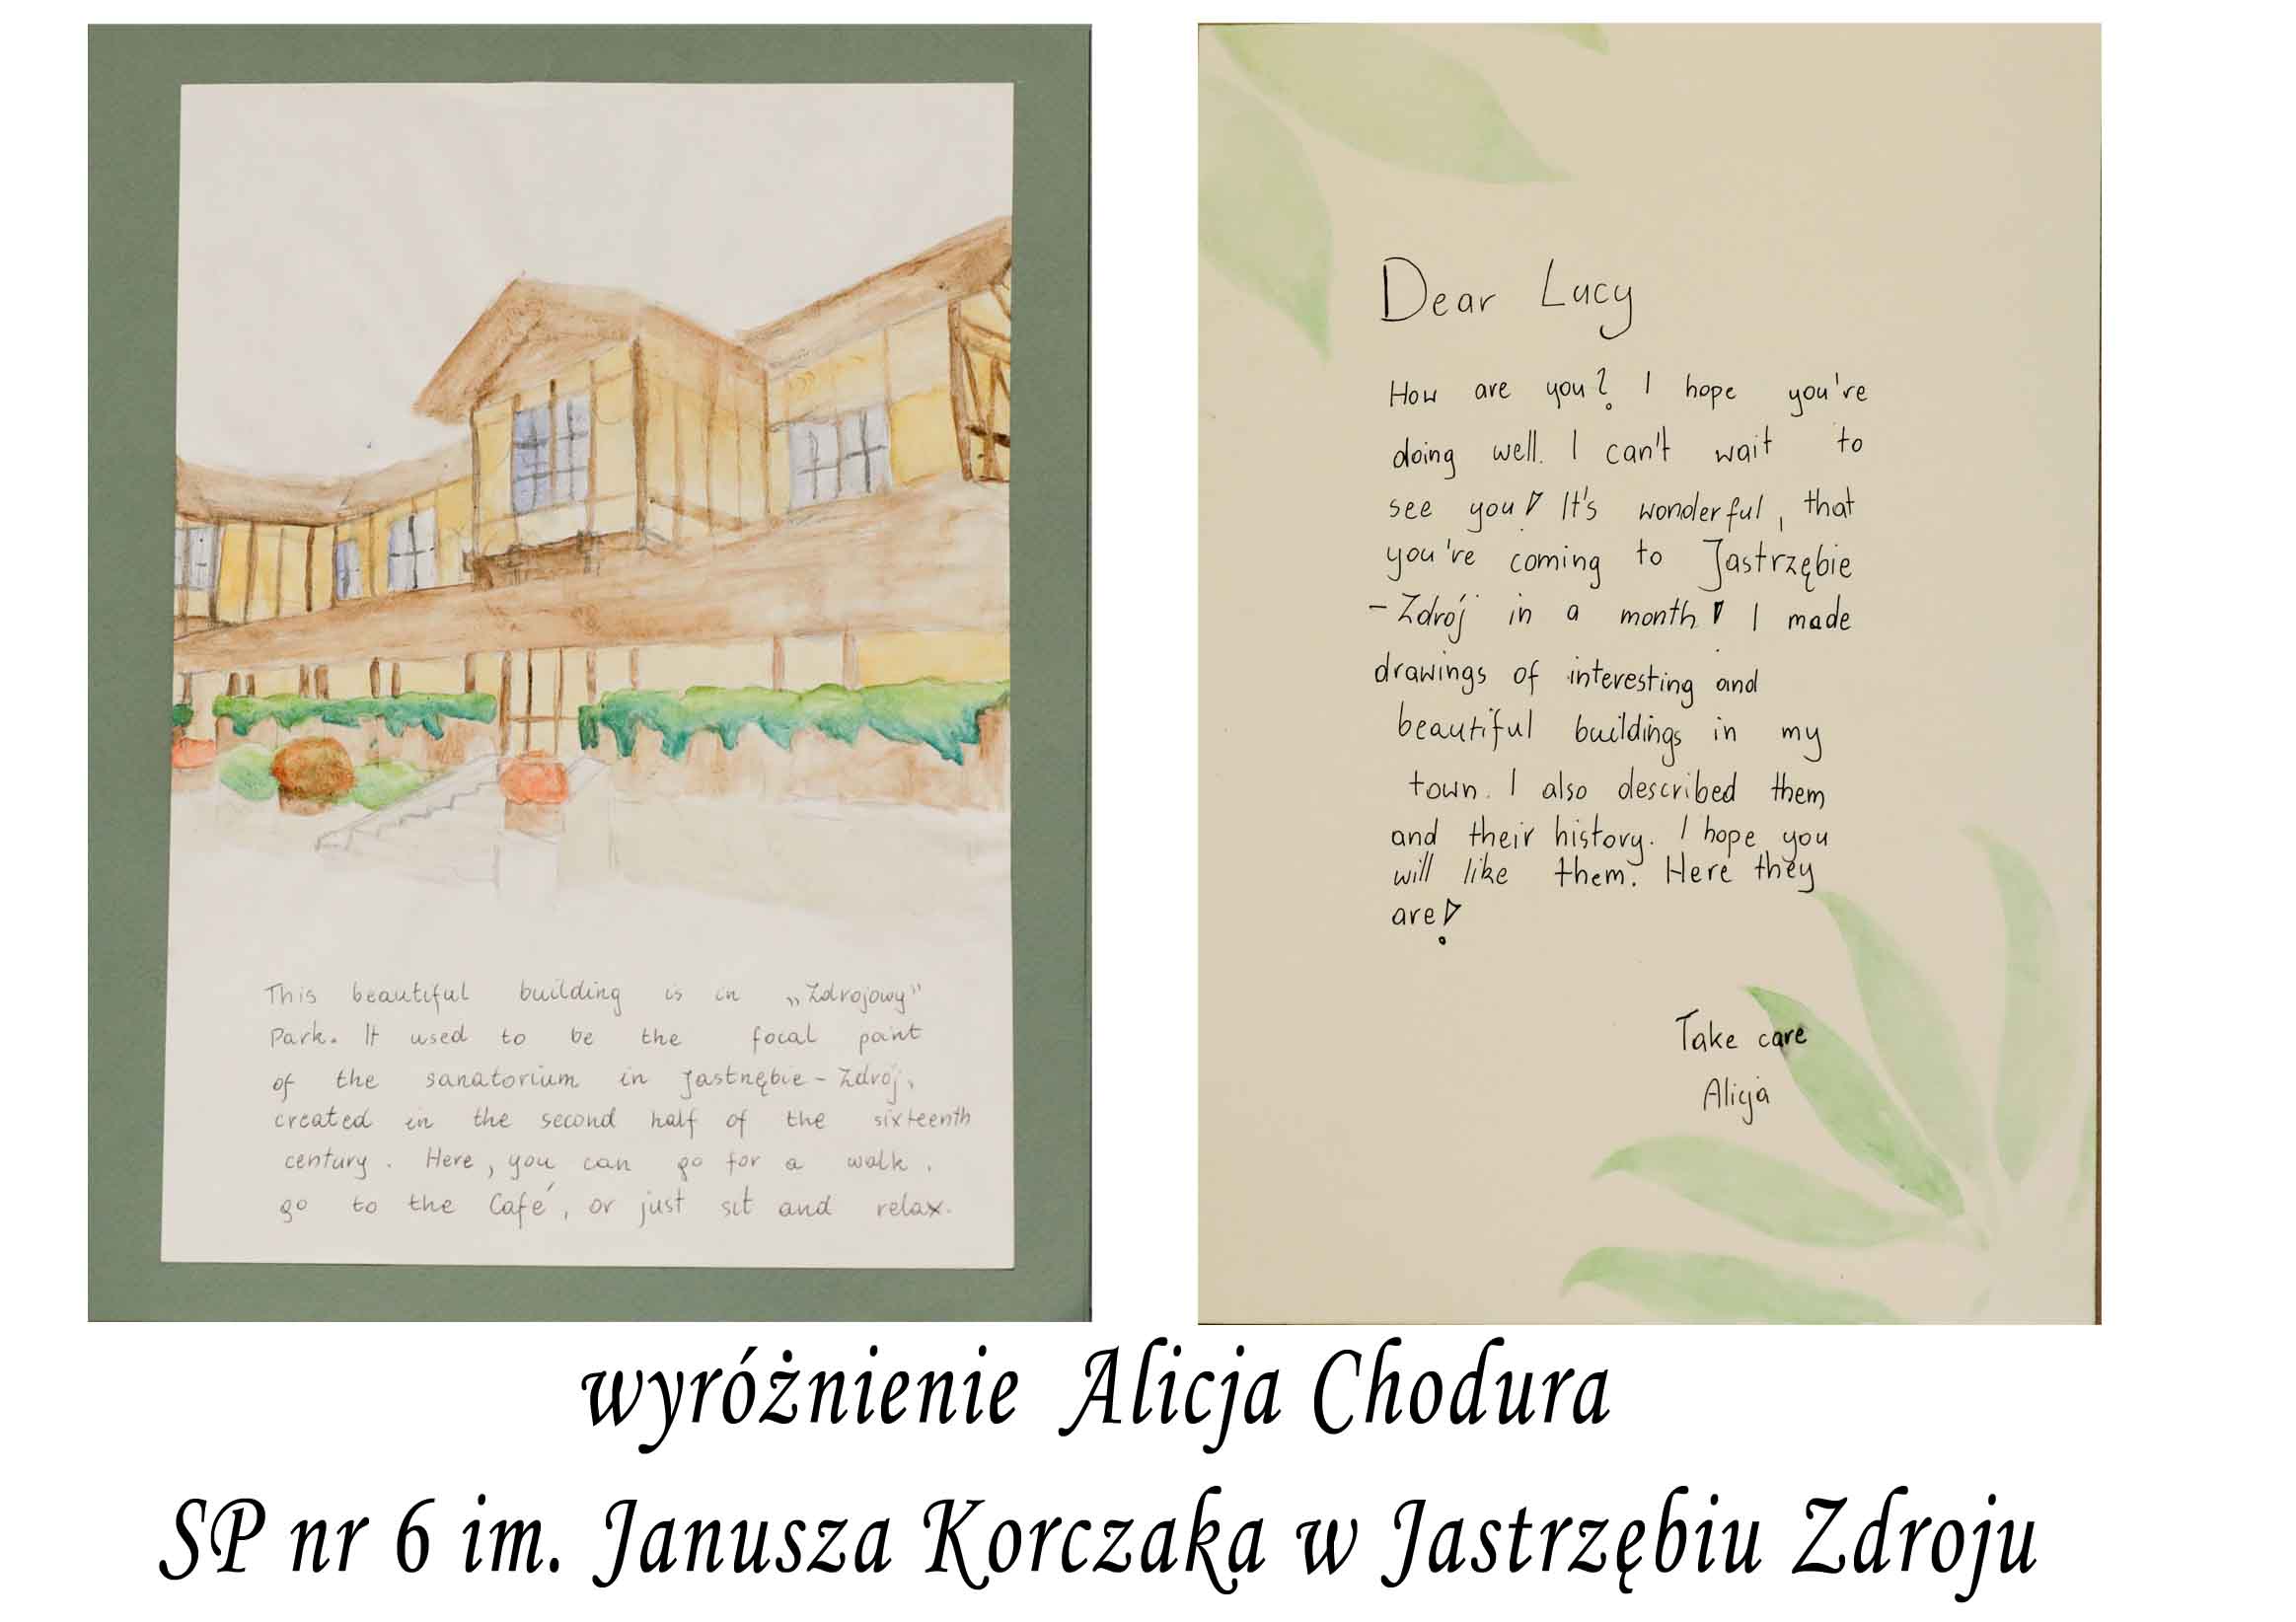 This beautiful building is in „Zdrojowy”
Park. It used to be the focal point
of the sanatorium in Jastrzębie-Zdrój,
created in the second half of the sixteenth
century. Here, you can go for a walk,
go to the Café, or just sit and relax.
Dear Lucy
How are you? I hope you're
doing well. I can't wait to
see you! It's wonderful, that
you're coming to Jastrzębie
-Zdrój in a month! I made
drawings of interesting and
beautiful buildings in my
town. I also described them
and their history. I hope you
will like them. Here they
are!
Take care
Alicja
wyróżnienie Alicja Chodura
SP nr 6 im. Janusza Korczaka w Jastrzębiu Zdroju